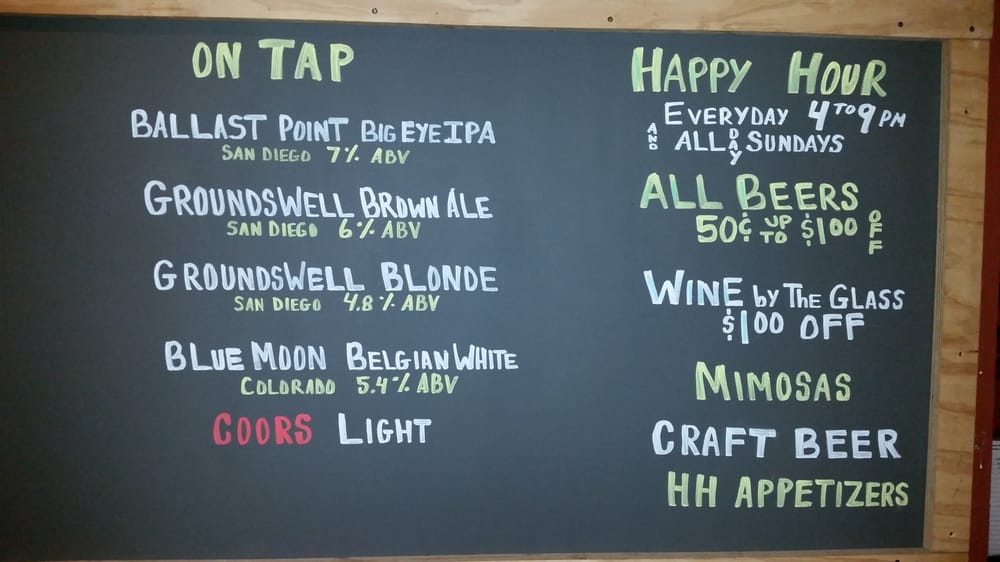 ON TAP
BALLAST POINT BIG EYE IPA
SAN DIEGO 7% ABV
GROUNDSWELL BROWN ALE
SAN DIEGO 6% ABV
GROUNDSWELL BLONDE
SAN DIEGO 4.8% ABV
BLUE MOON BELGIAN WHITE
COLORADO 5.4% ABV
COORS LIGHT
HAPPY HOUR
EVERYDAY 4 TO 9 PM
AND ALL DAY SUNDAYS
ALL BEERS
50¢ UP TO $1.00 OFF
WINE by THE GLASS
$1.00 OFF
MIMOSAS
CRAFT BEER
HH APPETIZERS